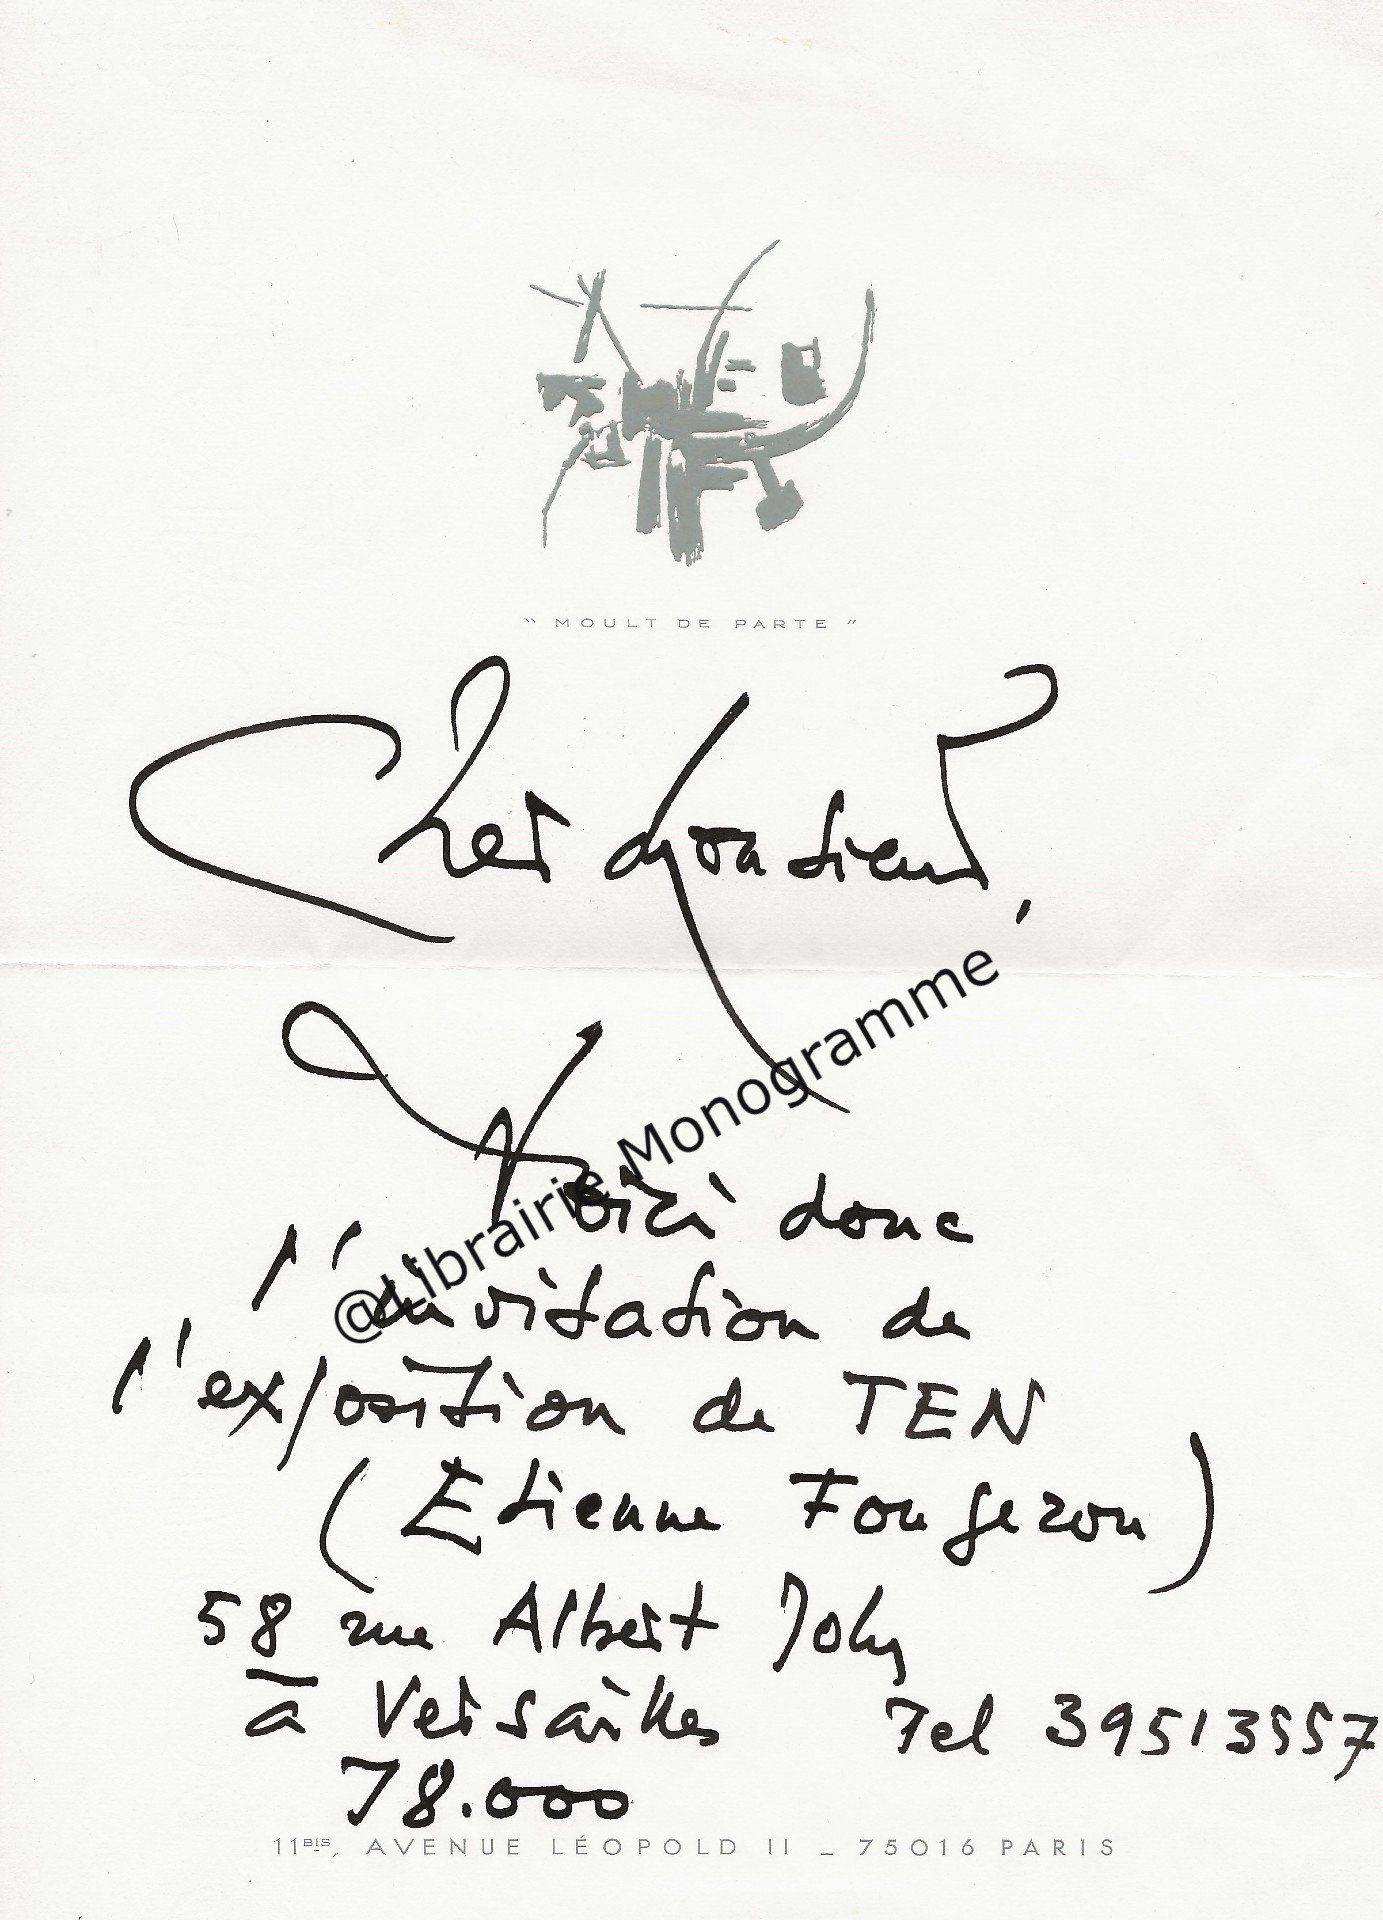 " MOULT DE PARTE "
Cher Monsieur,
Voici donc
l'invitation de
l'exposition de TEN
(Etienne Fougeron)
58 rue Albert Joly
à Versailles Tel 39513557
78.000
11BIS, AVENUE LÉOPOLD II _ 75016 PARIS
@Librairie Monogramme